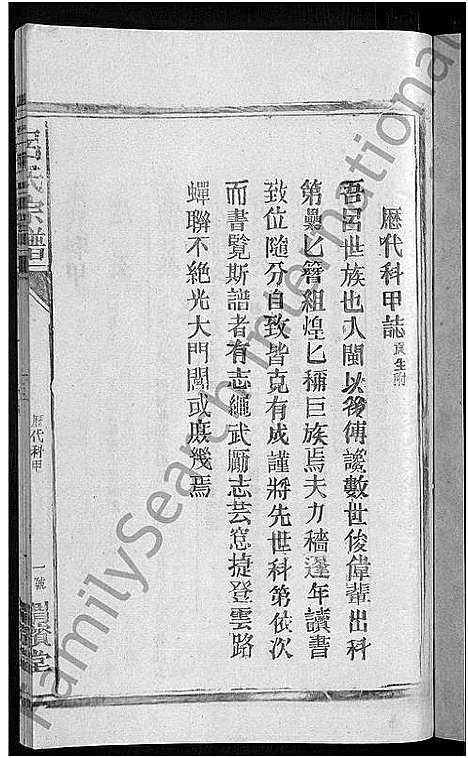 歷代科甲誌 貢生附
吾呂世族也入閩以後傳讒數世俊偉輩出科
第纍匕簪組煌匕稱巨族焉夫力穡逢年讀書
致位隨分自致皆克有成謹將先世科第依次
而書覽斯譜者有志繩武勵志芸窓捷登雲路
蟬聯不絶光大門閭或庶幾焉
呂氏宗譜
歷代科甲
一號
渭濱堂
FamilySearch International